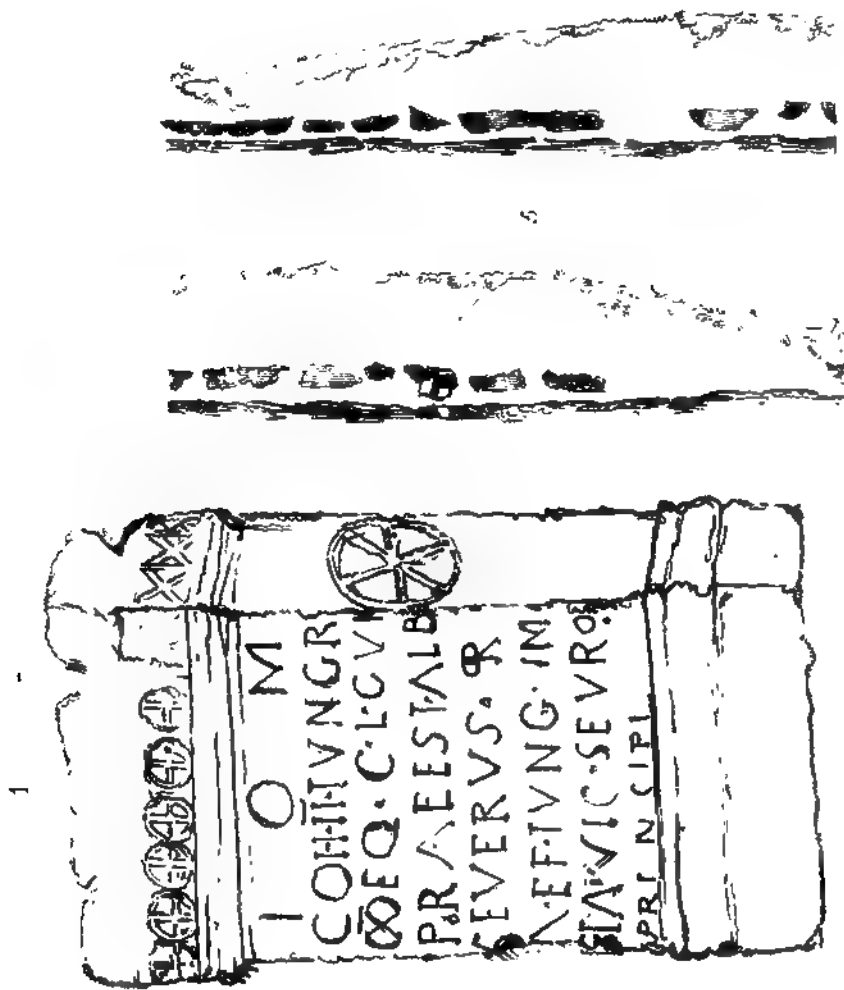 I O M
COH·II·TVNGR
∞EQ·C·L·CVI
PRAEEST·ALB
SEVERVS·PR
AEF·TVNG·IM
VIC·SEVRO
PRINCIPI
1
5